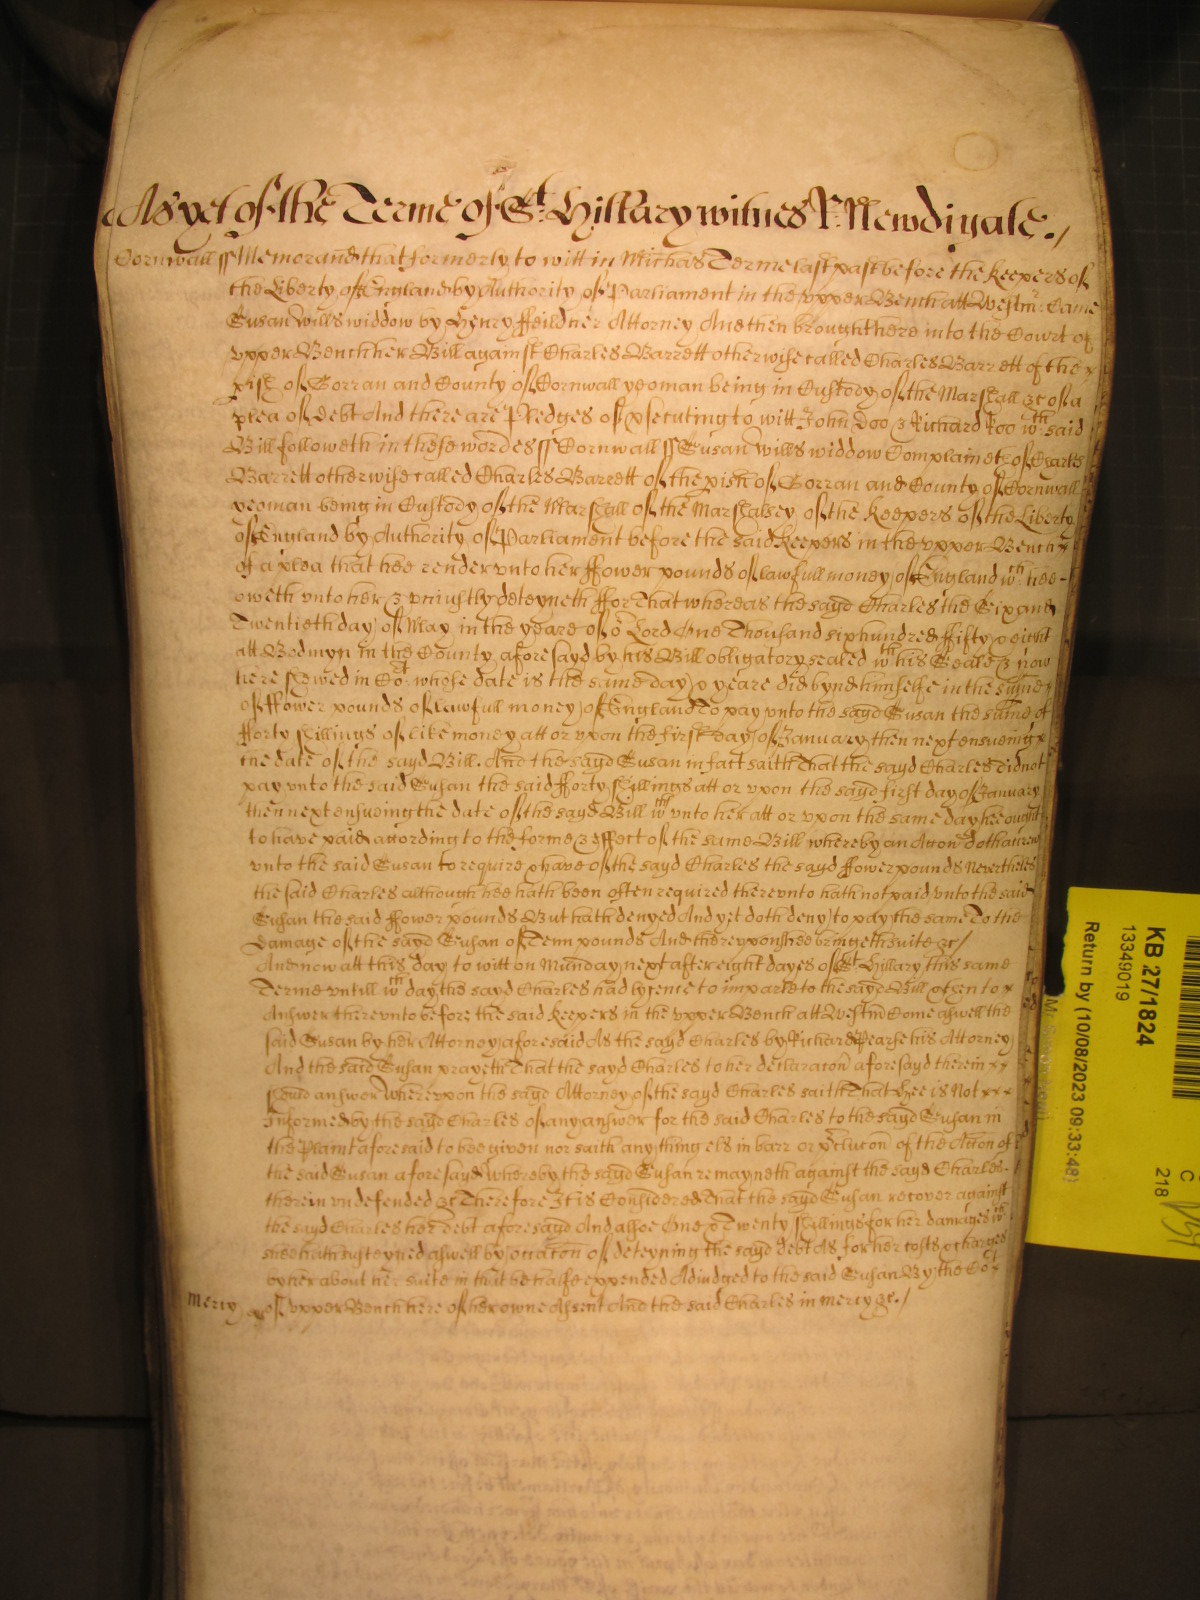 As yet of the Terme of St. Hillary witnes R: Newdigate./
Cornwall ss Memorand that formerly to witt in Michas Terme last past before the keepers of
the Liberty of England by Authority of Parliament in the vpper Bench att Westmr: Came
Susan Wills widdow by Henry ffeild her Attorney And then brought here into the Court of
vpper Bench her Bill against Charles Barrett otherwise called Charles Barrett of the x
pish of Gorran and County of Cornwall yeoman being in Custody of the Marshall &c of a
plea of debt And there are Pledges of psecuting to witt John Doo & Richard Roo wch said
Bill followeth in these wordes ss Cornwall ss Susan Wills widdow Complaineth of Charles
Barrett otherwise called Charles Barrett of the pish of Gorran and County of Cornwall
yeoman being in Custody of the Marshall of the Marshalsey of the keepers of the Liberty
of England by Authority of Parliament before the said keepers in the vpper Bench x
of a plea that hee render vnto her ffower pounds of lawfull money of England wch hee -
oweth vnto her & vniustly deteyneth ffor That whereas the sayd Charles the Six and
Twentieth day of May in the yeare of or Lord One Thousand six hundred ffifty & eight
att Bodmyn in the County aforesayd by his Bill obligatory sealed wth his Seale & now
here shewed in Cot whose date is the same day & yeare did bynd himselfe in the sume
of ffower pounds of lawfull money of England To pay vnto the sayd Susan the sume of
fforty shillings of like money att or vpon the first day of January then next ensueing x
the date of the sayd Bill. And the sayd Susan in fact saith That the sayd Charles did not
pay vnto the said Susan the said fforty shillings att or vpon the sayd first day of January
then next ensueing the date of the sayd Bill wch vnto her att or vpon the same day hee ought
to have paid according to the forme & effect of the same Bill whereby an Accon doth accrew
vnto the said Susan to require & have of the sayd Charles the sayd ffower pounds Nevertheles
the said Charles although hee hath been often required therevnto hath not paid vnto the said
Susan the said ffower pounds But hath denyed And yet doth deny to pay the same To the
damage of the sayd Susan of Tenn pounds And therevpon shee bringeth suite &c/
And now att this day to witt on Munday next after eight dayes of St Hillary this same
Terme vntill wch day the sayd Charles had lycence to imparle to the sayd Bill & then to x
Answer therevnto before the said keepers in the vpper Bench att Westm Come aswell the
said Susan by her Attorney aforesaid As the sayd Charles by Richard Pearse his Attorney
And the said Susan prayeth That the sayd Charles to her declaracon aforesayd therein xx
should answer Wherevpon the sayd Attorney of the sayd Charles saith That hee is Not xxx
Informed by the sayd Charles of any answer for the said Charles to the sayd Susan in
the Plaint aforesaid to bee given nor saith any thing els in barr or pclucon of the Accon of
the said Susan aforesayd whereby the sayd Susan remayneth against the sayd Charles -
therein vndefended &c Therefore It is Considered That the sayd Susan recover against
the sayd Charles her debt aforesayd And alsoe One & Twenty shillings for her damages wch
shee hath susteyned aswell by occacon of deteyning the sayd debt As for her costs & charges
by her about her suite in that behalfe expended Adiudged to the said Susan By the Cot
mercy of vpper Bench here of her owne Assent And the said Charles in mercy &c./
KB 27/1824
13349019
Return by (10/08/2023 09:33:48)
C
218